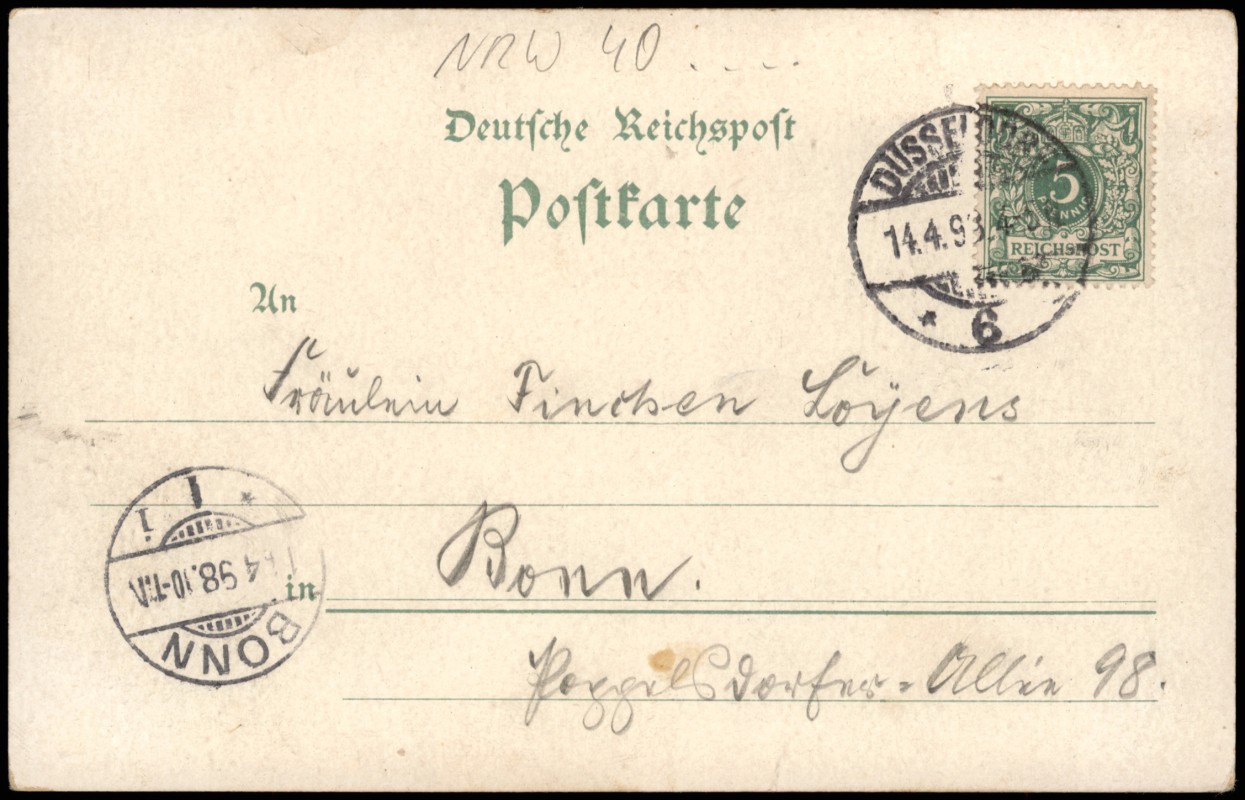 NRW 40 . . . .
Deutsche Reichspost
Postkarte
DÜSSELDORF
14.4.98.4-5N
* 6
5
PFENNIG
REICHSPOST
An
Fräulein Finchen Loÿens
in Bonn.
Poppelsdorfer-Allée 98.
BONN
4 98.10-11N.
* 1 i